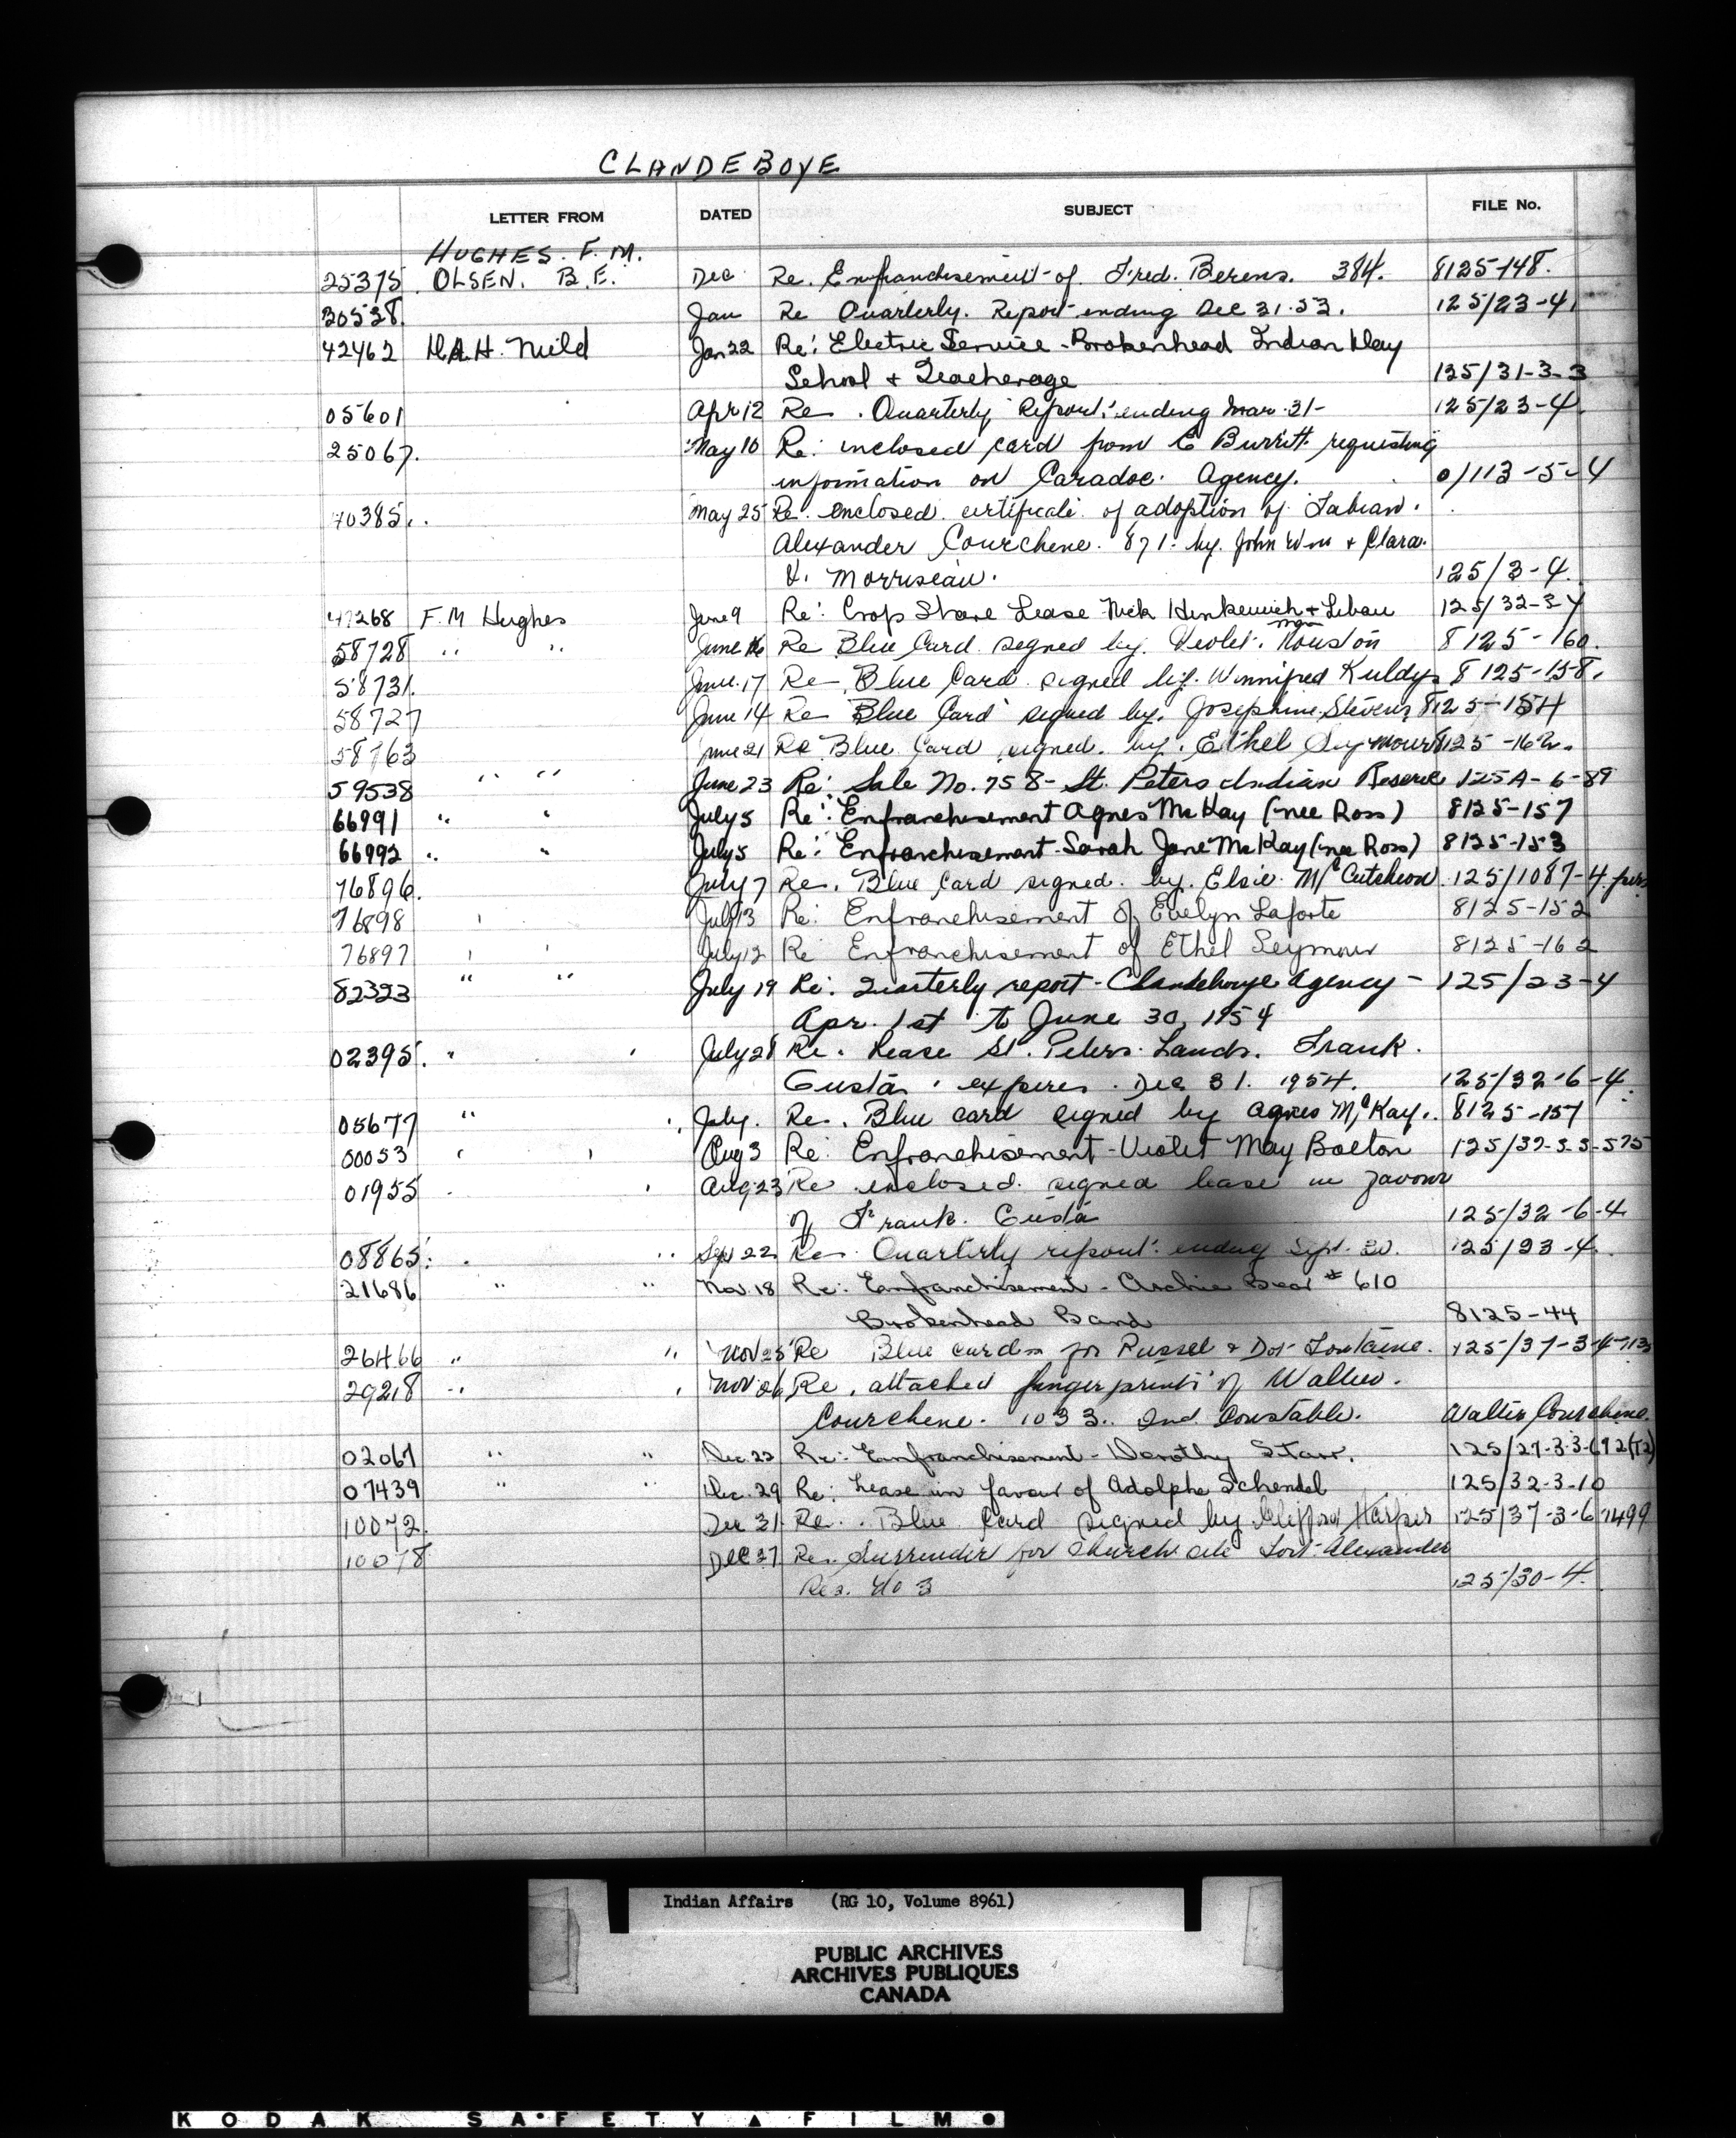 CLANDEBOYE
LETTER FROM DATED SUBJECT FILE No.
HUGHES. F. M.
25375 OLSEN. B.E. Dec Re. Enfranchisement of Fred. Berens. 384. 8125-148.
30528. Jan Re Quarterly. Report ending Dec 31.53. 125/23-4.
42462 Jan 22 Re: Electric Service - Brokenhead Indian Day
School + Teacherage 125/31-3-3
05601 Apr 12 Re. Quarterly Report: ending Mar. 31- 125/23-4.
25067. May 10 Re: inclosed card from E Burritt requesting
information on Caradoc Agency. 0/113-5-4
40385. May 25 Re. enclosed certificate of adoption of Fabian.
Alexander Courchene. 871. by. John Wm + Clara.
V. Morriseau. 125/3-4.
47268 F.M Hughes June 9 Re: Crop Share Lease Nick + Libau 125/32-3-4
58728 " " June 16 Re Blue Card signed by. Violet. Houston 8125-160.
58731. June 17 Re Blue Card signed by. Winnifred Kuldys 8125-158.
58727 June 14 Re Blue Card signed by. Josephine Stevens 8125-154
58763 June 21 Re Blue Card signed. by. Ethel Seymour 8125-162.
59538 " " June 23 Re: Sale No. 758 - St. Peters Indian Reserve 125A-6-89
66991 " " July 5 Re: Enfranchisement Agnes McKay (nee Ross) 8125-157
66992 " " July 5 Re: Enfranchisement Sarah Jane McKay (nee Ross) 8125-153
76896. July 7 Re. Blue Card signed. by. Elsie. McCutcheon. 125/1087-4
76898 ' July 13 Re: Enfranchisement of Evelyn Laforte 8125-152
76897 ' ' July 12 Re Enfranchisement of Ethel Seymour 8125-162
82323 " " July 19 Re: Quarterly report - Clandeboye Agency - 125/23-4
Apr. 1st to June 30, 1954
02395. " ' July 28 Re. Lease St. Peters Lands. Frank.
Gusta. expires. Dec 31. 1954. 125/32-6-4.
05677 " " July. Re. Blue card signed by Agnes McKay. 8125-157
00053 ' ' Aug 3 Re: Enfranchisement - Violet May Bolton 125/37-3-3-575
01955 Aug 23 Re enclosed signed lease in favour
of Frank. Gusta 125/32-6-4
08865. " Sept 22 Re. Quarterly report ending Sept. 30. 125/23-4.
21686 " " Nov. 18 Re: Enfranchisement - Archie Bear # 610
Brokenhead Band 8125-44
26466 " " Nov 25 Re Blue cards for Russel + Dor Fontaine. 125/37-3-4-713
29218 " ' Nov 26 Re. attached finger prints of Walter.
Courchene. 1033. Ind. Constable. Walter Courchene.
02067 " " Dec. 22 Re: Enfranchisement - Dorothy Starr. 125/27-3-3-692(T2)
07439 " " Dec. 29 Re: Lease in favour of Adolphe Schendel 125/32-3-10
10072. Dec 31 Re. Blue Card signed by Clifford Harper 125/37-3-6-1499
10078 Dec 27 Re. Surrender for Church site Fort Alexander
Res. No 3 125/30-4.
Indian Affairs (RG 10, Volume 8961)
PUBLIC ARCHIVES
ARCHIVES PUBLIQUES
CANADA
KODAK SAFETY FILM